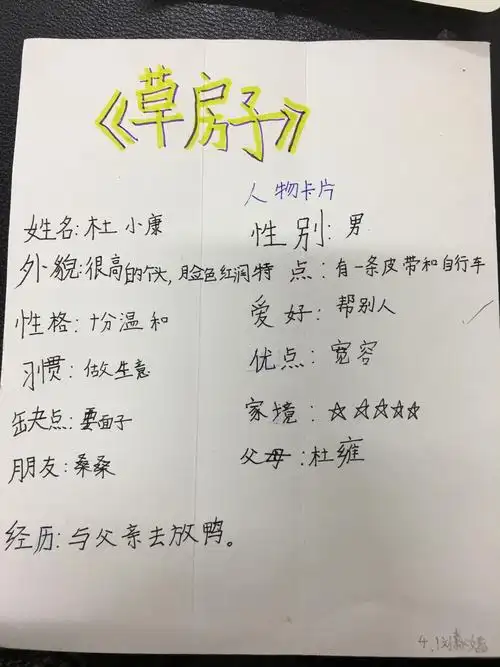 《草房子》
人物卡片
姓名:杜小康 性别:男
外貌:很高的个头,脸色红润 特点:有一条皮带和自行车
性格:十分温和 爱好:帮别人
习惯:做生意 优点:宽容
缺点:要面子 家境:☆☆☆☆☆
朋友:桑桑 父母:杜雍
经历:与父亲去放鸭。
4.